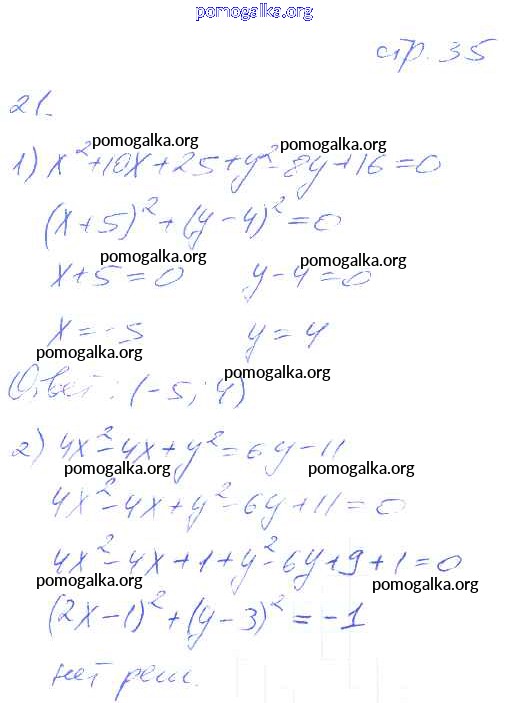 pomogalka.org
стр. 35
21.
pomogalka.org pomogalka.org
1) x²+10x+25+y²-8y+16=0
(x+5)²+(y-4)²=0
pomogalka.org pomogalka.org
x+5=0 y-4=0
x=-5 y=4
pomogalka.org pomogalka.org
Ответ: (-5; 4)
2) 4x²-4x+y²=6y-11
pomogalka.org pomogalka.org
4x²-4x+y²-6y+11=0
4x²-4x+1+y²-6y+9+1=0
pomogalka.org pomogalka.org
(2x-1)²+(y-3)²=-1
нет реш.